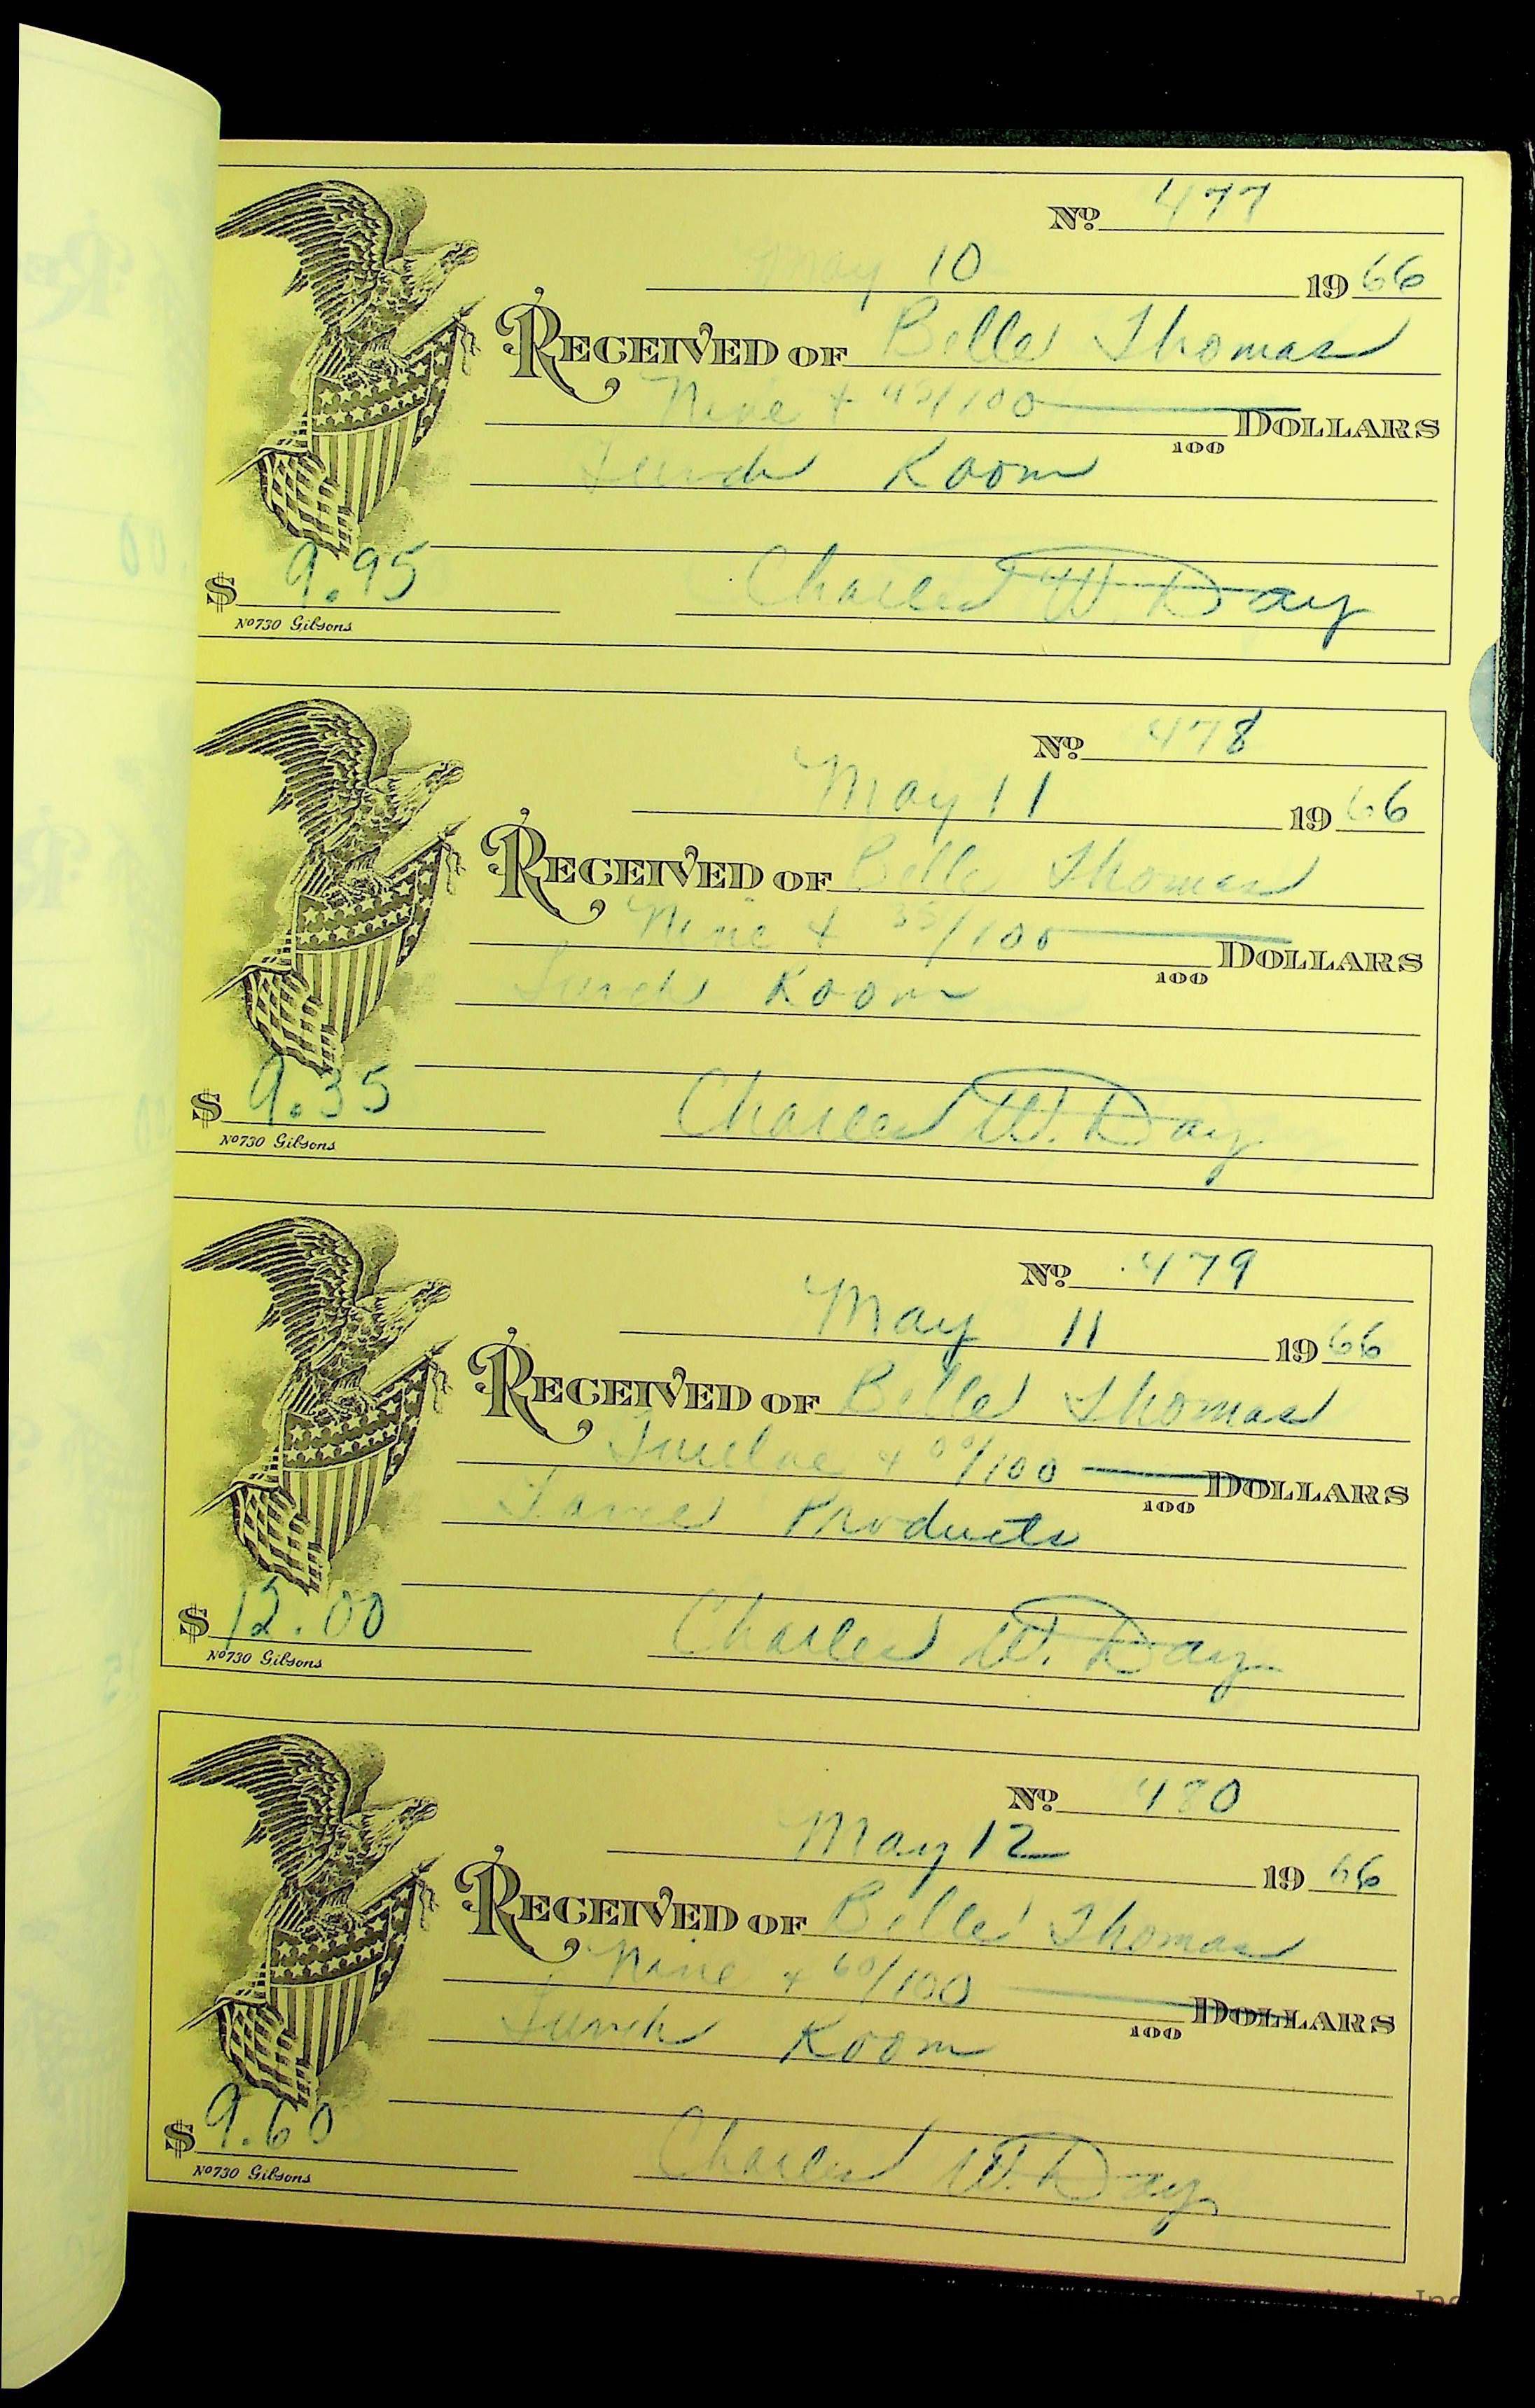 Nº 477
May 10 19 66
RECEIVED OF Belle Thomas
Nine + 95/100 DOLLARS
100
Lunch Room
$ 9.95 Charles W. Day
Nº730 Gibsons
Nº 478
May 11 19 66
RECEIVED OF Belle Thomas
Nine + 35/100 DOLLARS
100
Lunch Room
$ 9.35 Charles W. Day
Nº730 Gibsons
Nº 479
May 11 19 66
RECEIVED OF Belle Thomas
Twelve + 00/100 DOLLARS
100
Products
$ 12.00 Charles W. Day
Nº730 Gibsons
Nº 480
May 12 19 66
RECEIVED OF Belle Thomas
Nine + 60/100 DOLLARS
100
Lunch Room
$ 9.60 Charles W. Day
Nº730 Gibsons